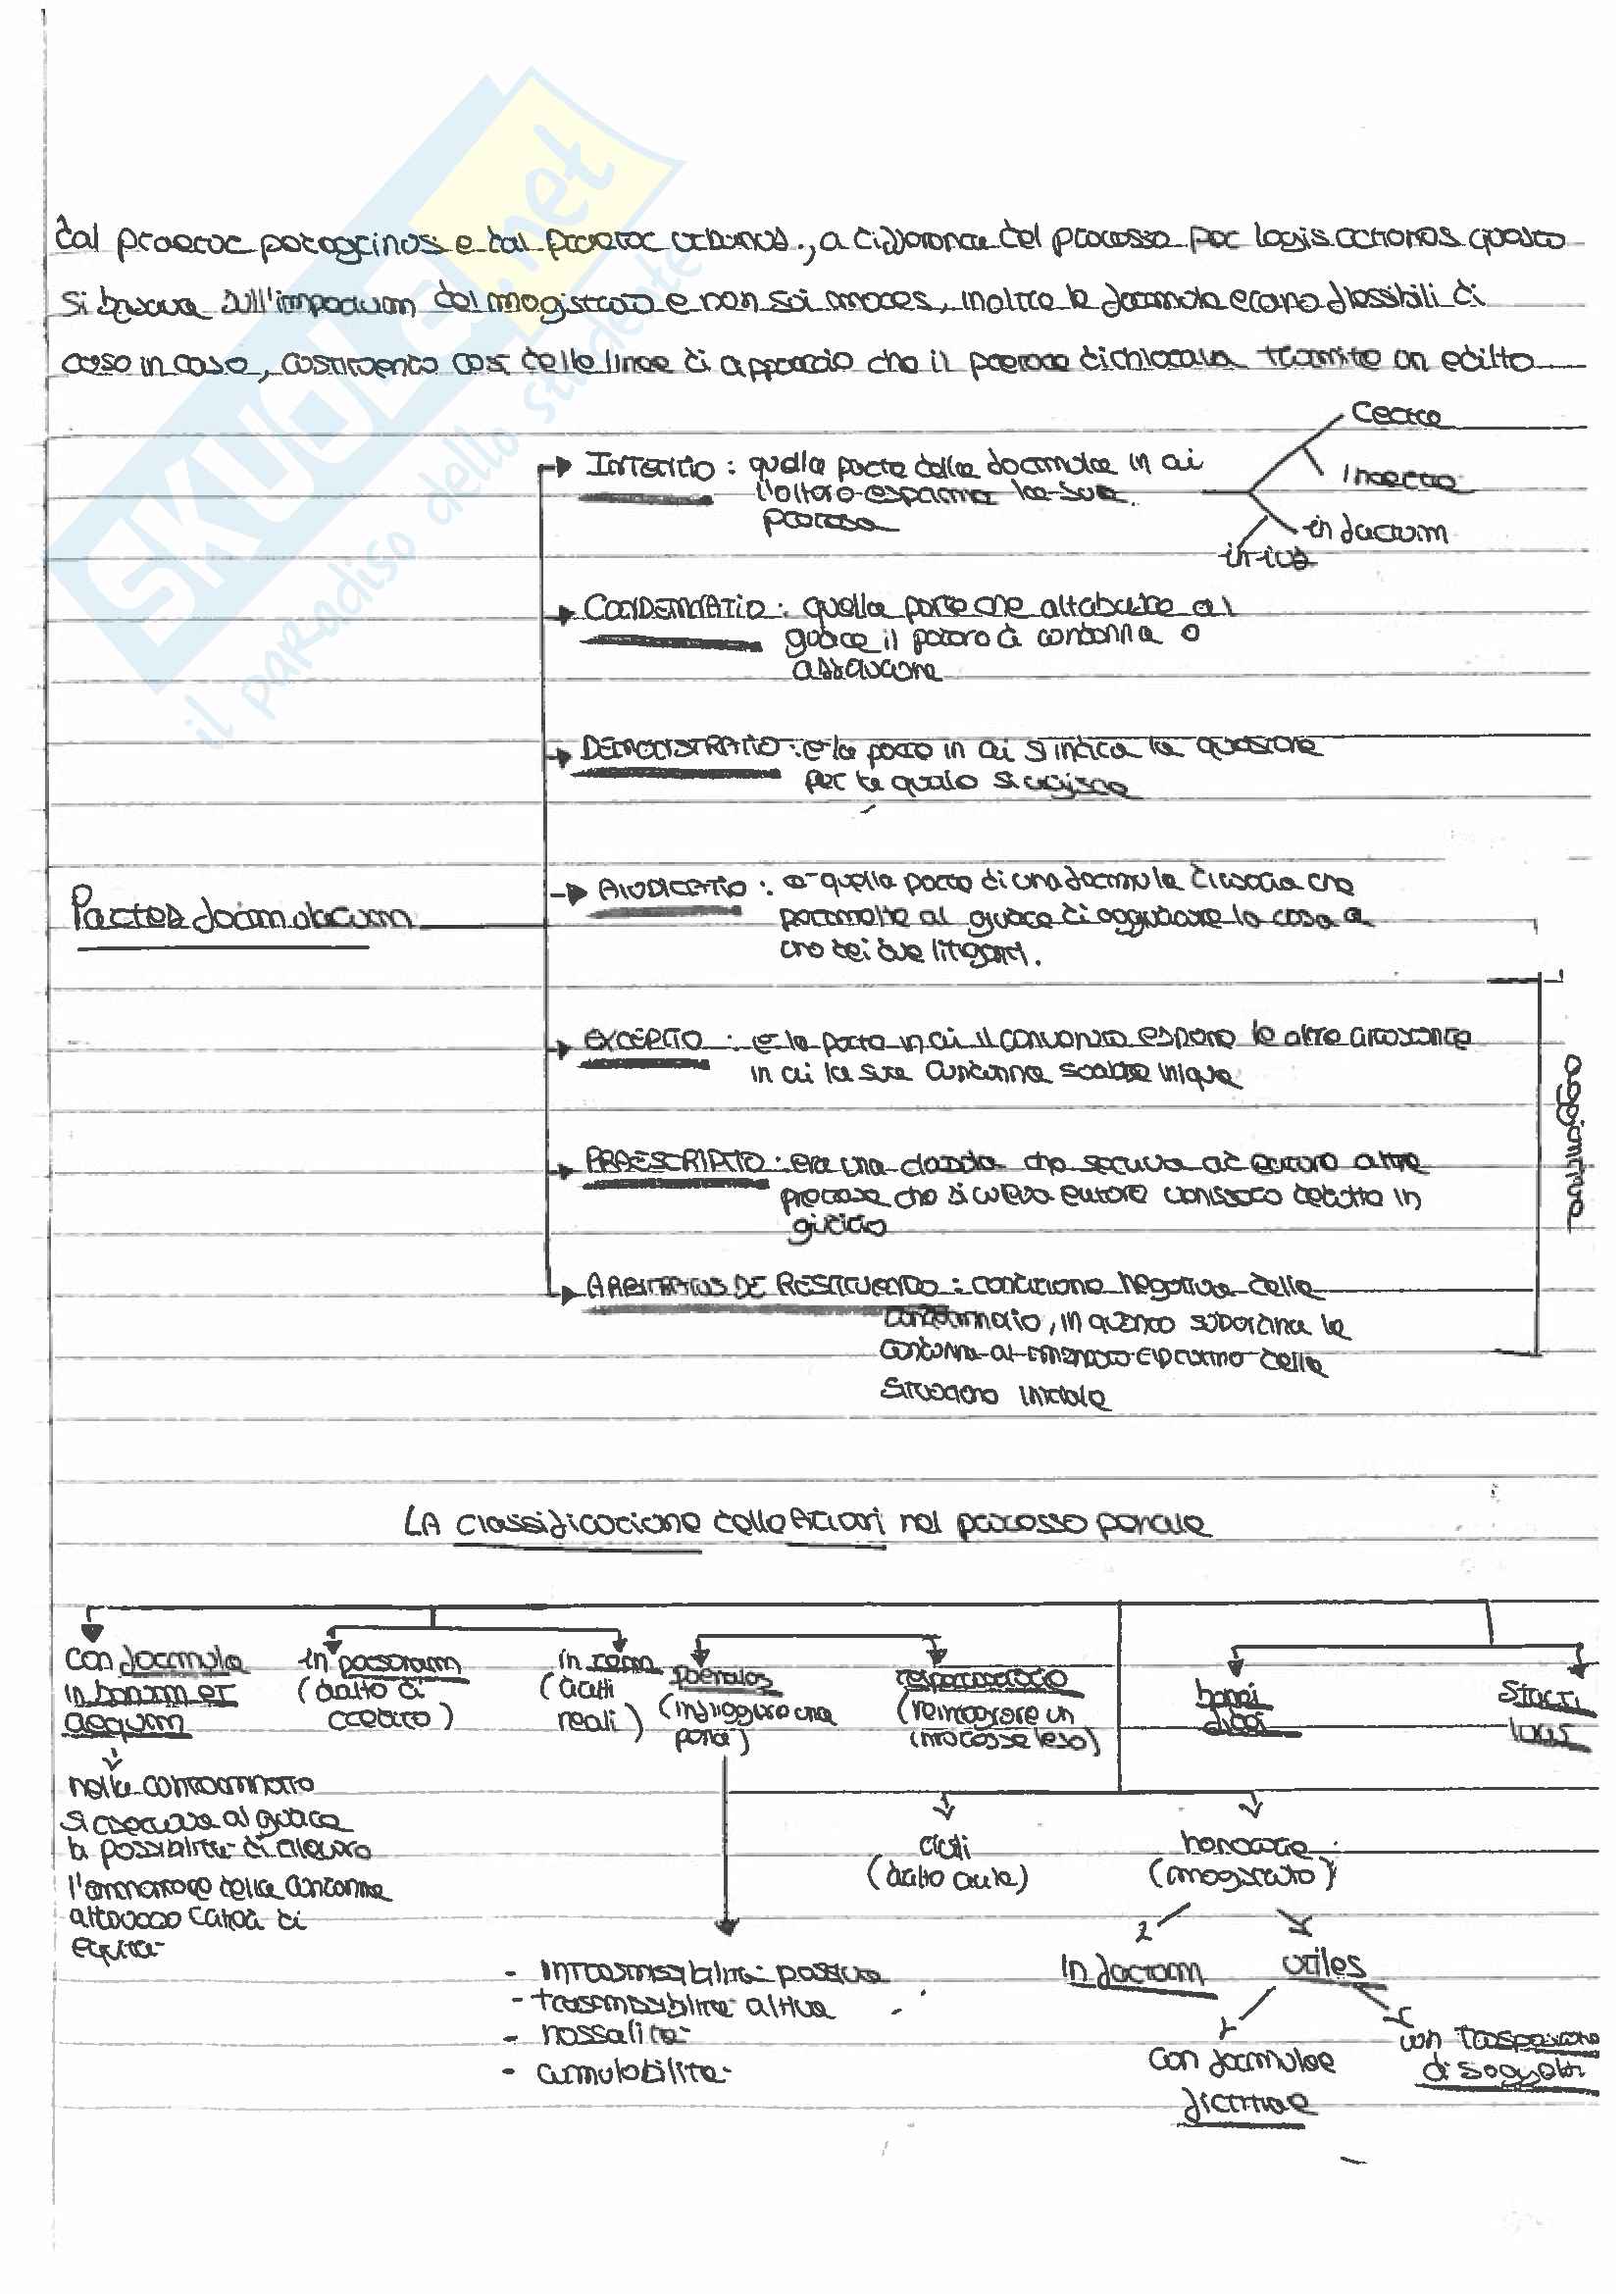 dal praetor peregrinus e dal praetor urbanus, a differenza del processo per legis actiones questo
si basava sull'imperium del magistrato e non sui mores, inoltre le formule erano flessibili di
caso in caso, costituendo così delle linee di approccio che il pretore dichiarava tramite un editto
Partes formularum
INTENTIO : quella parte della formula in cui
l'attore esprime la sua
pretesa
Certa
Incerta
in factum
in ius
CONDEMNATIO : quella parte che attribuire al
giudice il potere di condanna o
assoluzione
DEMONSTRATIO : è la parte in cui si indica la questione
per la quale si agisce
AIUDICATIO : è quella parte di una formula divisoria che
permette al giudice di aggiudicare la cosa a
uno dei due litiganti.
EXCEPTIO : è la parte in cui il convenuto espone le altre circostanze
in cui la sua condanna sarebbe iniqua
PRAESCRIPTIO : era una clausola che serviva ad evitare altre
pretese che si voleva evitare venissero dedotte in
giudizio
ARBITRATUS DE RESTITUENDO : condizione negativa della
condemnatio, in quanto subordina la
condanna al mancato ripristino della
situazione iniziale
aggiuntiva
LA classificazione delle Azioni nel processo penale
con formula
in bonum et
aequum
nella condemnatio
si assegnava al giudice
la possibilità di
l'ammontare della condanna
attraverso canoni di
equità
in personam
(diritto di
credito)
in rem
(diritti
reali)
poenales
(infliggere una
pena)
- intrasmissibilità passiva
- trasmissibilità attiva
- nossalità
- cumulabilità
(reintegrare un
interesse leso)
civili
(diritto civile)
honorarie
(magistrato)
In factum
utiles
con formulae
fictitiae
con trasposizione
di soggetti
bonae
fidei
stricti
iuris
SKUOLA.net
il paradiso dello studente